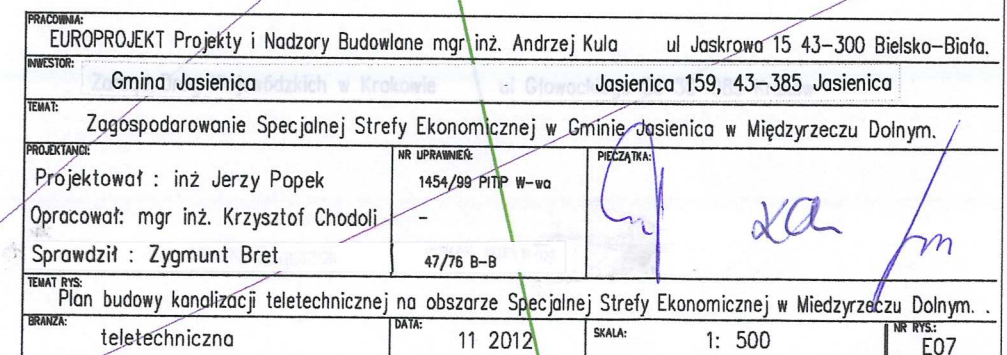 PRACOWNIA:
EUROPROJEKT Projekty i Nadzory Budowlane mgr inż. Andrzej Kula ul Jaskrowa 15 43-300 Bielsko-Biała.
INWESTOR:
Gmina Jasienica Jasienica 159, 43-385 Jasienica
TEMAT:
Zagospodarowanie Specjalnej Strefy Ekonomicznej w Gminie Jasienica w Międzyrzeczu Dolnym.
PROJEKTANCI: NR UPRAWNIEŃ: PIECZĄTKA:
Projektował : inż Jerzy Popek 1454/99 PITiP W-wa
Opracował: mgr inż. Krzysztof Chodoli -
Sprawdził : Zygmunt Bret 47/76 B-B
TEMAT RYS:
Plan budowy kanalizacji teletechnicznej na obszarze Specjalnej Strefy Ekonomicznej w Miedzyrzeczu Dolnym. .
BRANŻA: DATA: SKALA: NR RYS.:
teletechniczna 11 2012 1: 500 E07